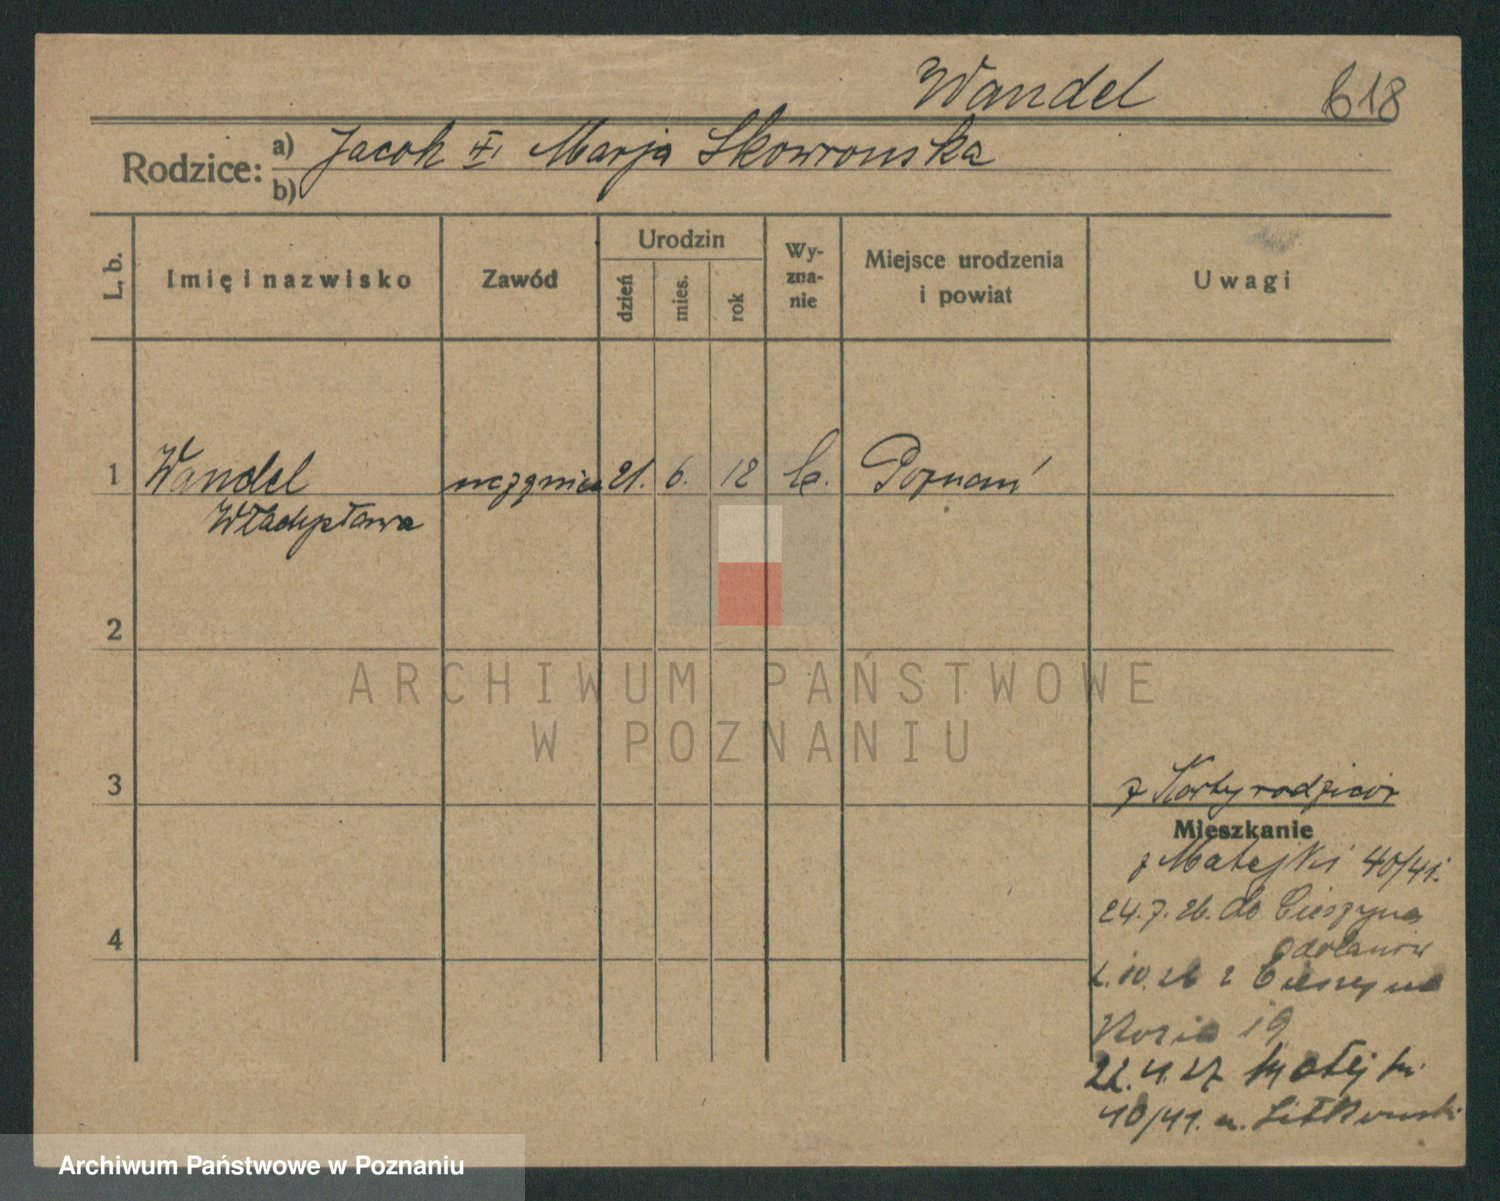 Wandel
618
Rodzice:
a) Jacob Marja Skowronska
b)
L. b.
Imię i nazwisko
Zawód
Urodzin
dzień
mies.
rok
Wy-
zna-
nie
Miejsce urodzenia
i powiat
Uwagi
1
Wandel
Władysława
21. 6. 12
Poznań
2
3
4
z Karty rodziców
Mieszkanie
z Matejki 40/41.
24.7.26. do Cieszyna
Odolanów
10.26 z Cieszyna
19
22. 27 Matejki
40/41. u.
ARCHIWUM PAŃSTWOWE
W POZNANIU
Archiwum Państwowe w Poznaniu